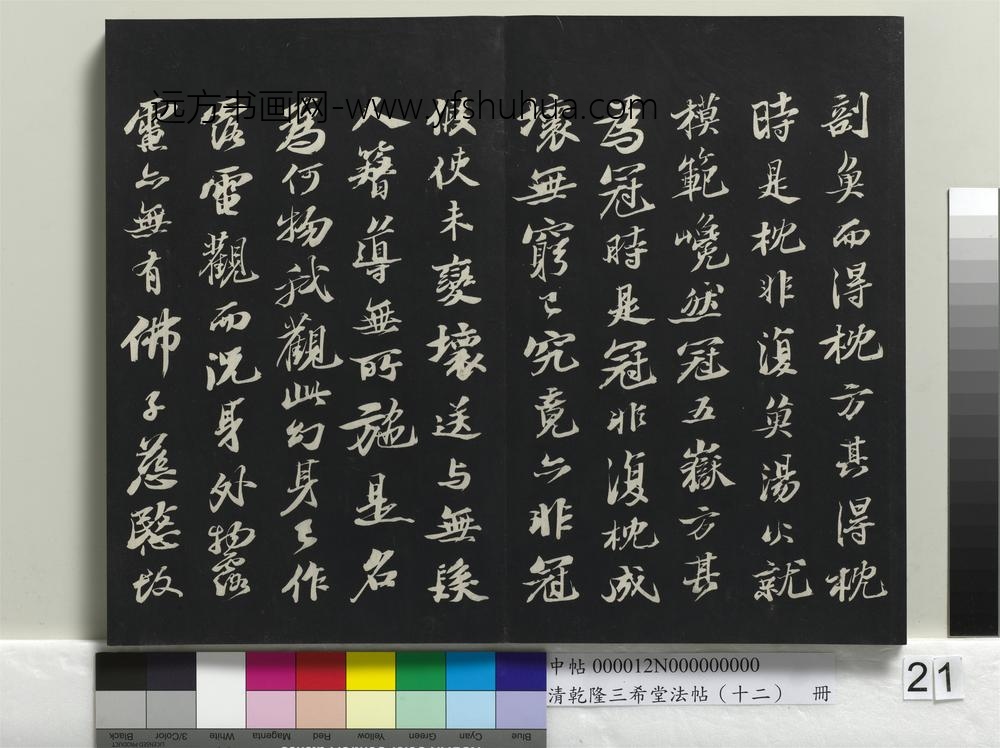 剖魚而得枕方其得枕
時是枕非復魚湯火就
模範巉然冠五嶽方其
為冠時是冠非復枕成
壞無窮已究竟亦非冠
假使未變壞送与無髮
人簪導無所施是名
為何物我觀此幻身已作
露電觀而況身外物露
電亦無有佛子慈愍故
远方书画网-www.yfshuhua.com
中帖 000012N000000000
清乾隆三希堂法帖（十二） 冊
21
Black
3/Color
White
Magenta
Red
Yellow
Green
Cyan
Blue